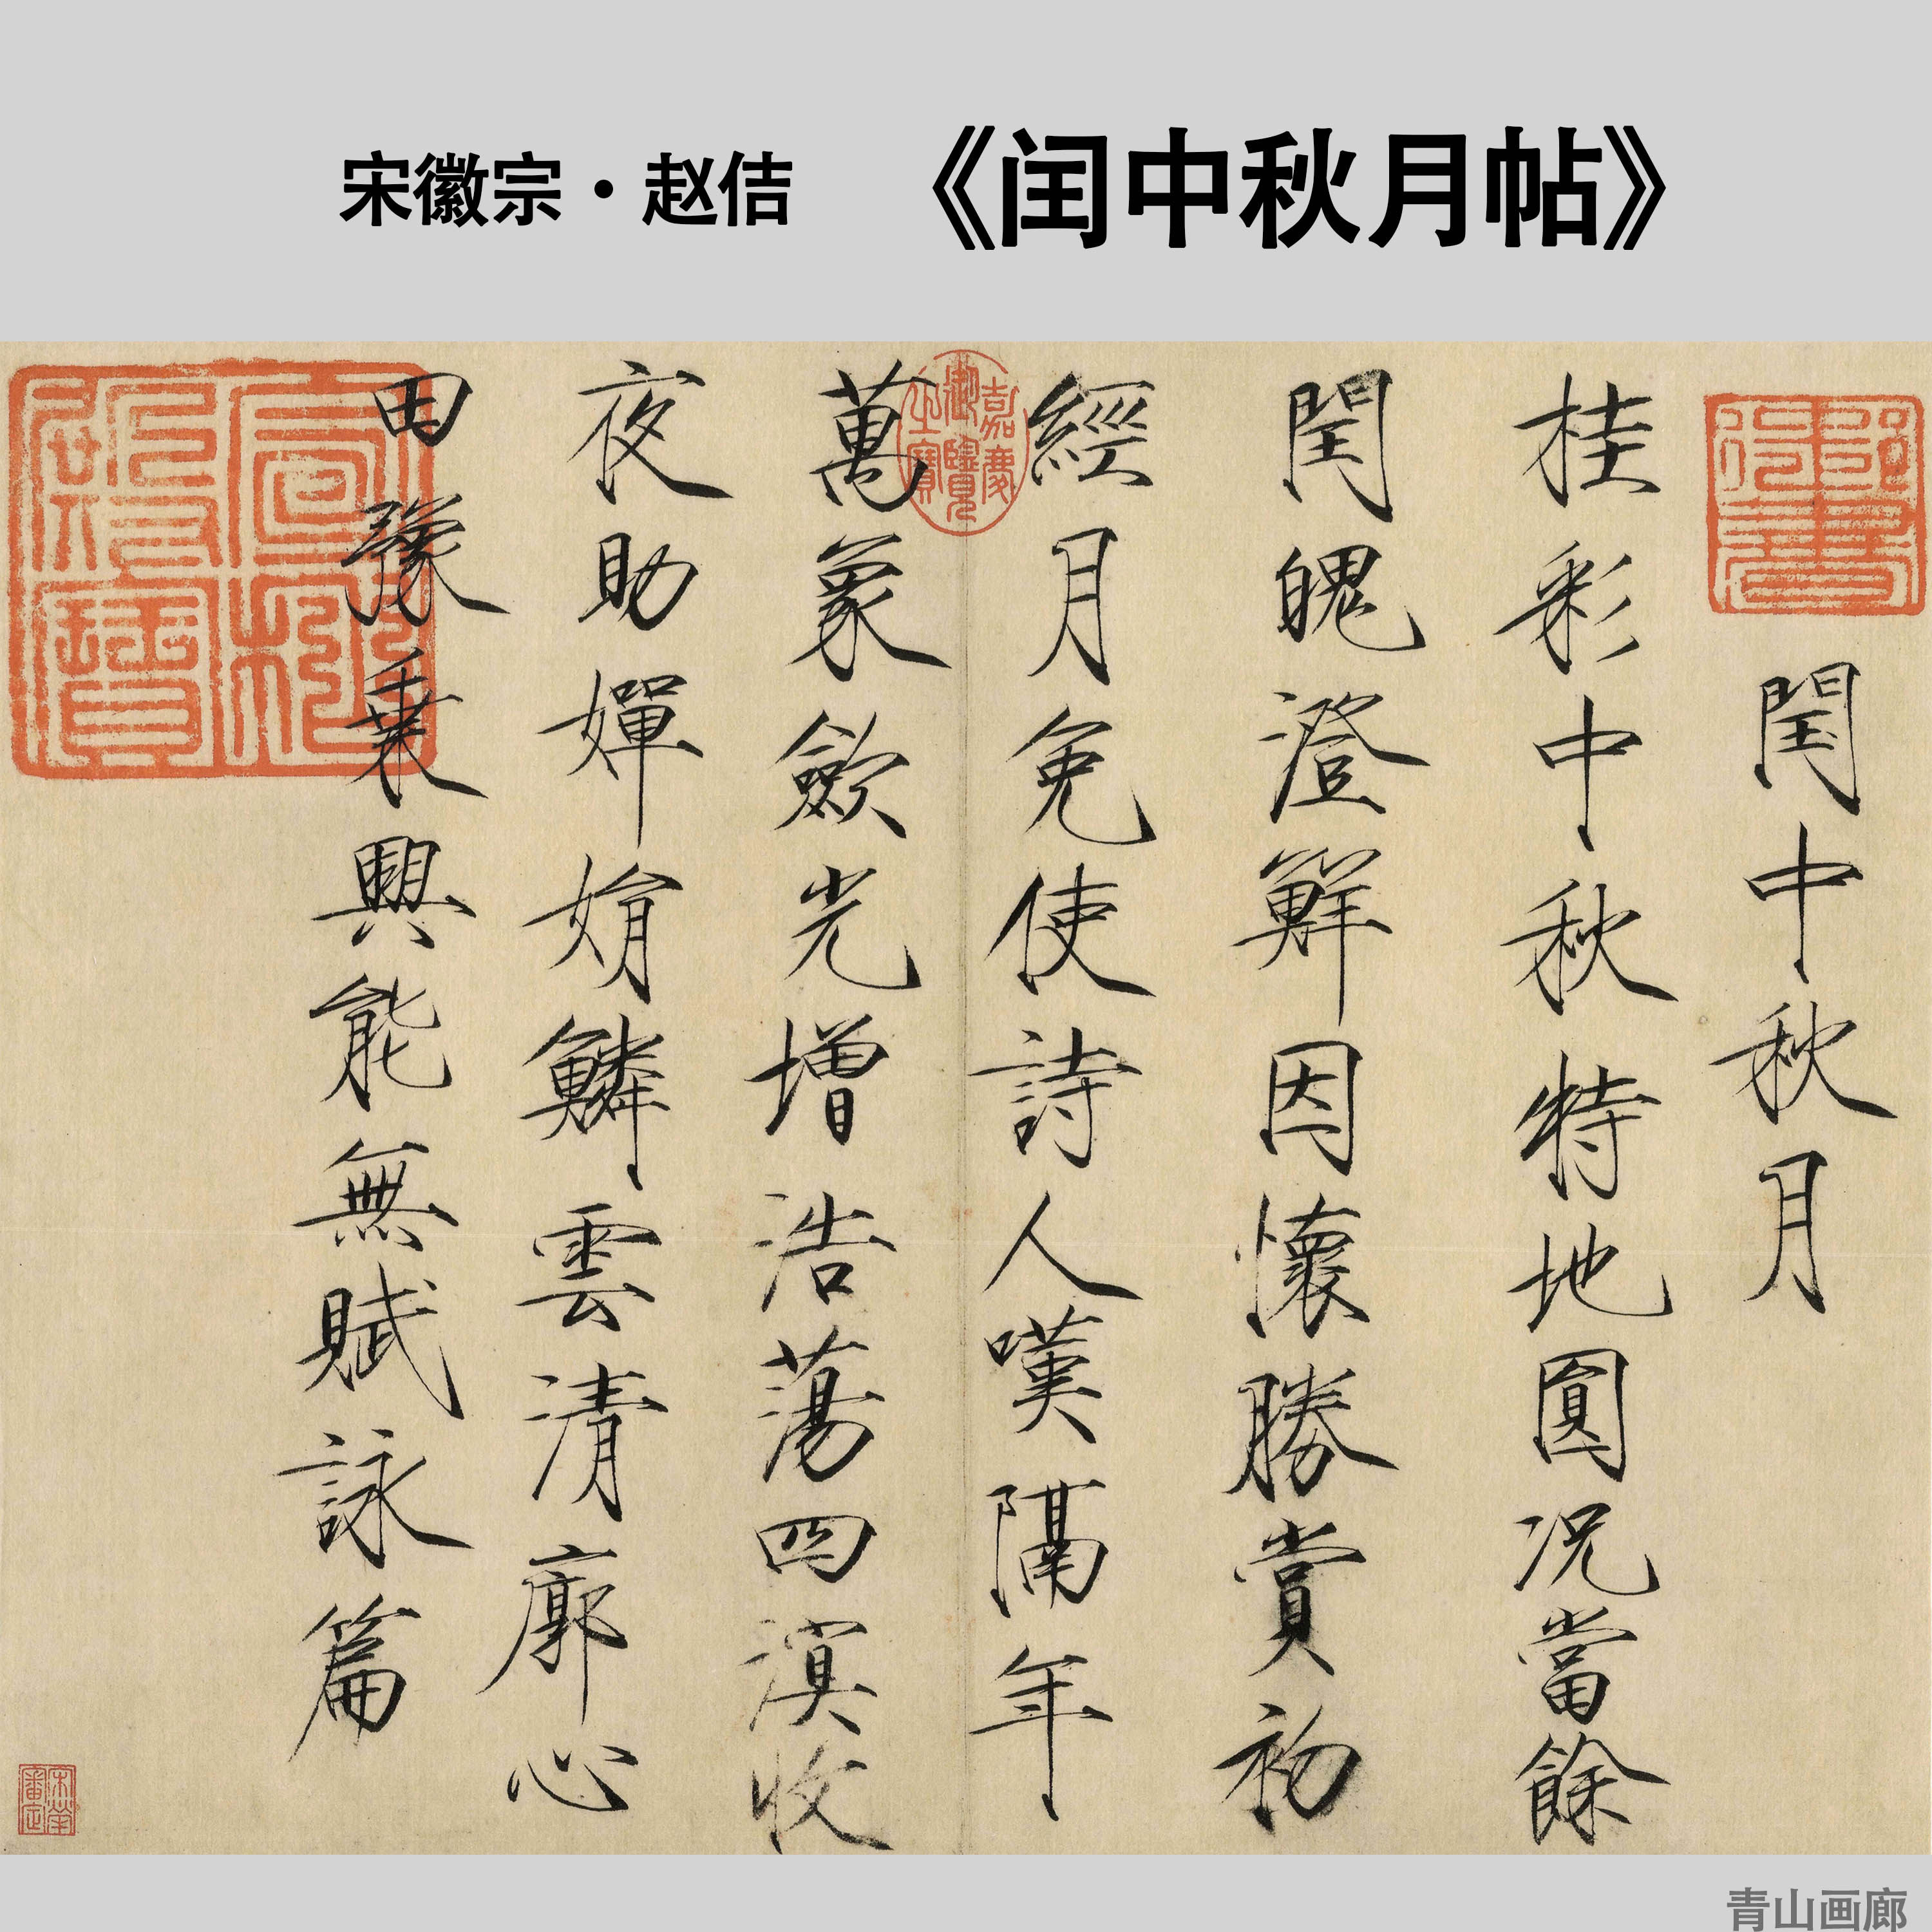 宋徽宗·赵佶 《闰中秋月帖》
閏中秋月
桂彩中秋特地圓况當餘
閏魄澄鮮因懷勝賞初
經月免使詩人嘆隔年
嘉慶御覽之寶
萬象歛光增浩蕩四溟收
夜助嬋娟鱗雲清廓心
田豫乗興能無賦詠篇
宋犖審定
青山画廊